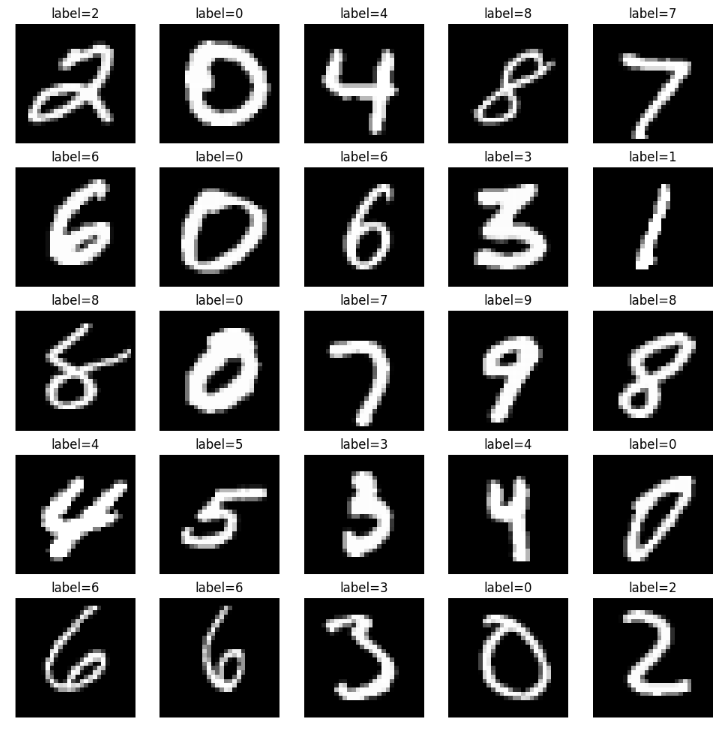 label=2 label=0 label=4 label=8 label=7
2 0 4 8 7
label=6 label=0 label=6 label=3 label=1
6 0 6 3 1
label=8 label=0 label=7 label=9 label=8
8 0 7 9 8
label=4 label=5 label=3 label=4 label=0
4 5 3 4 0
label=6 label=6 label=3 label=0 label=2
6 6 3 0 2